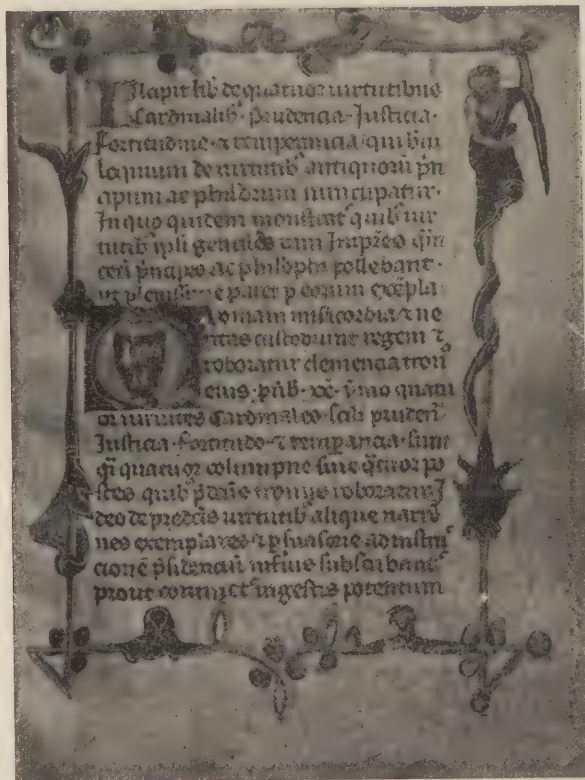 Incipit lib de quatuor uirtutibus
Cardinalib · Prudencia · Justicia ·
Fortitudine · ⁊ temperancia · qui breui
loquium de uirtutib antiquorū prin
cipum ac philosophorum nuncupatur ·
In quo quidem monstrat quib uir
tutib ipsi gentiles tam
ceri principes ac philosophi pollebant ·
ut plenissime patet p eorum exēpla
Quoniam misericordia ⁊ ue
ritas custodiunt regem ⁊
roboratur clemencia tron
eius · prīb · xx · ymo quatu
or uirtutes Cardinales · scilic pruden
Justicia · fortitudo · ⁊ temperancia · sunt
qi quatuor columpne siue qtuor po
stes quib pdcūs tronus roboratur J
deo de predcis uirtutib alique narrō
nes exemplares ⁊ psuasorie ad instru
cionē psidenciū inferius subscribant
prout contingit in gestis potentum